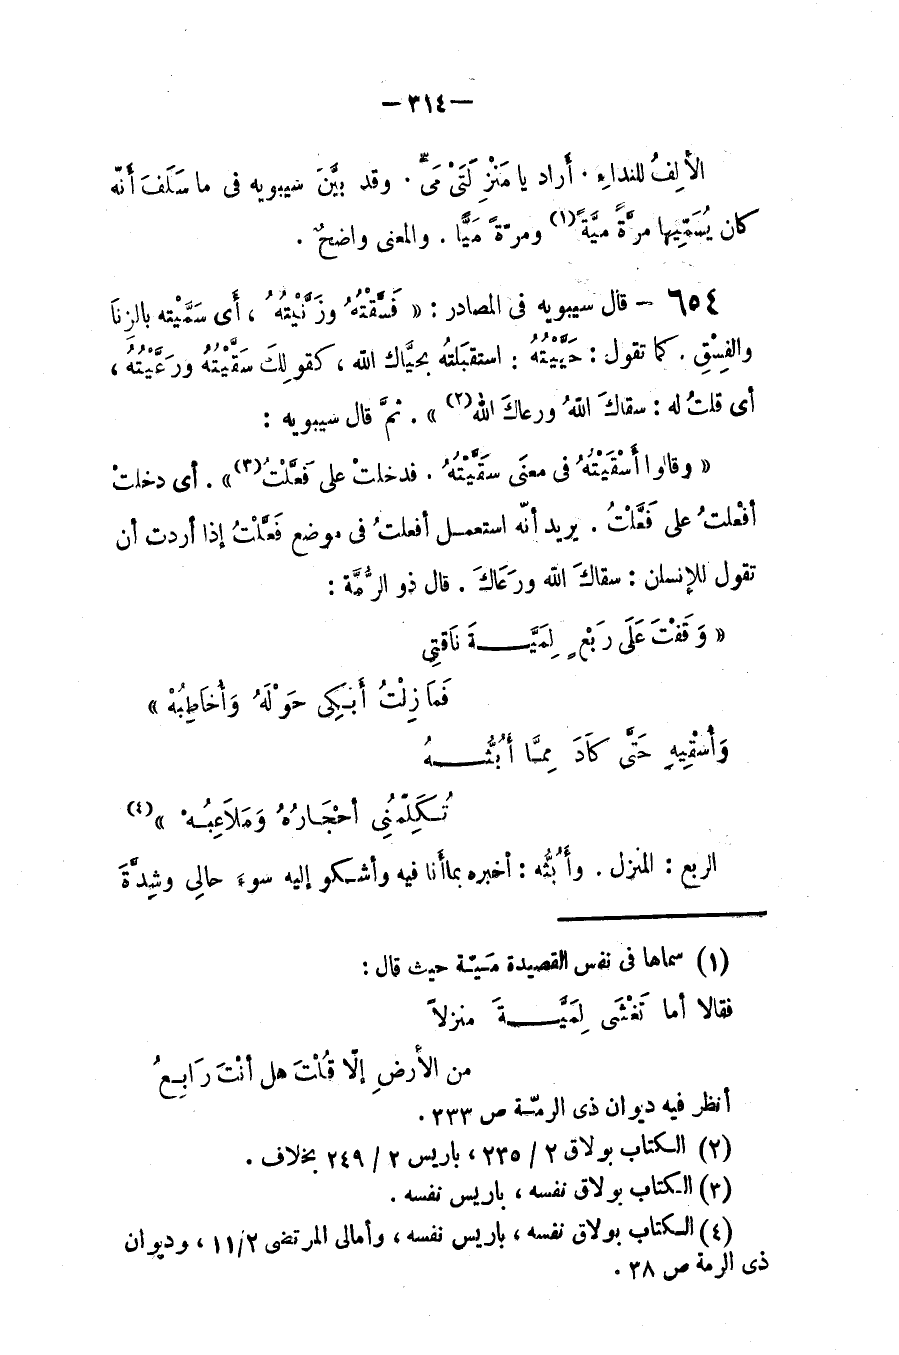 — ٣١٤ —
الألفُ للنداءِ . أَراد يا مَنْزِلَتَىْ مَىٍّ . وقد بيَّنَ سيبويه فى ما سَلَفَ أَنّه
كان يُسَمِّيها مرَّةً ميَّةً (١) ومرّةً مَيًّا . والمعنى واضحٌ .
٦٥٤ — قال سيبويه فى المصادر : « فَسَّقْتُهُ وزَنَّيْتهُ ُ ، أَى سَمَّيْته بالزِنَا
والفِسْقِ . كما تقول : حَيَّيْتُهُ : استقبَلتهُ بحيَّاك الله ، كقولكَ سَقَّيْتُهُ ورَعَّيْتُهُ ،
أى قلتُ له : سقاكَ اللهُ ورعاكَ الله (٢) » . ثمَّ قال سيبويه :
« وقالوا أَسْقَيْتُهُ فى معنَى سَقَّيْتُهُ . فدخلتْ على فَعَّلْتُ (٣) » . أى دخلتْ
أفْعلتُ على فَعَّلْتُ . يريد أنّه استعمل أفعلتُ فى موضع فَعَّلْتُ إذا أردت أن
تقول للإنسان : سقاكَ الله ورَعَاكَ . قال ذو الرُّمَّة :
« وَقَفْتَ عَلَى رَبْعٍ لِمَيَّـــةَ نَاقتِى
فَمَا زِلْتُ أَبكِى حَوْلَهُ وَأُخَاطِبُهْ »
وَأُسْقِيهِ حَتَّى كَادَ مِمَّا أَبُثُّـــهُ
تُكَلِّمُنِى أحْجَارُهُ وَمَلَاعِبُهْ » (٤)
الربع : المنزل . وأَبُثُّه : أخبره بما أنا فيه وأشكو إليه سوءَ حالى وشِدَّةَ
(١) سماها فى نفس القصيدة مَيّة حيث قال :
فقالا أما تَغْشَى لِمَيَّـــةَ منزلاً
من الأرضِ إلّا قُلْتَ هل أنْتَ رَابِعُ
أنظر فيه ديوان ذى الرمّة ص ٣٣٣ .
(٢) الكتاب بولاق ٢ / ٢٣٥ ، باريس ٢ / ٢٤٩ بخلاف .
(٣) الكتاب بولاق نفسه ، باريس نفسه .
(٤) الكتاب بولاق نفسه ، باريس نفسه ، وأمالى المرتضى ١١/٢ ، وديوان
ذى الرمة ص ٣٨ .